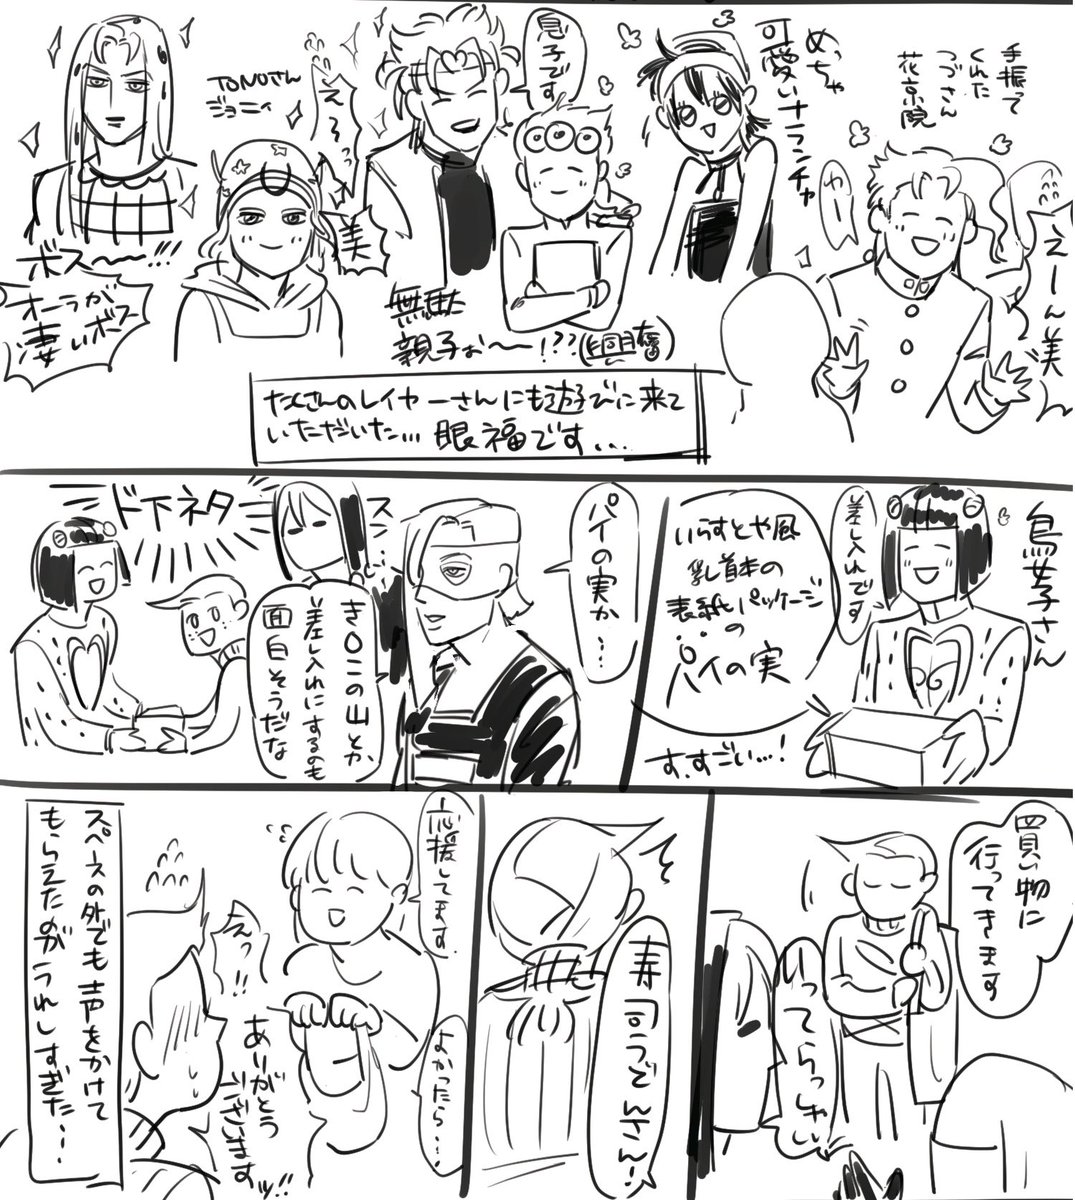 手振って
くれた
つづさん
花京院
わー
えーん美
めっちゃ
可愛いナランチャ
息子です
無駄
親子ぉ〜!??(興奮)
えっ
美
TONOさん
ジョニィ
ボス〜!!!
オーラが
凄いボス
たくさんのレイヤーさんにも遊びに来て
いただいた… 眼福です…
鳥芋さん
差し入れです
いらすとや風
乳首本の
表紙パッケージ
の
パイの実
す、すごい…!
パイの実か…
ス…
き○この山とか
差し入れにするのも
面白そうだな
ド下ネタ
買い物に
行ってきます
いってらっしゃい
寿司うでんさん!
応援してます
よかったら…
えっ!!
ありがとう
ございますッ!!
スペースの外でも声をかけて
もらえたのがうれしすぎた…